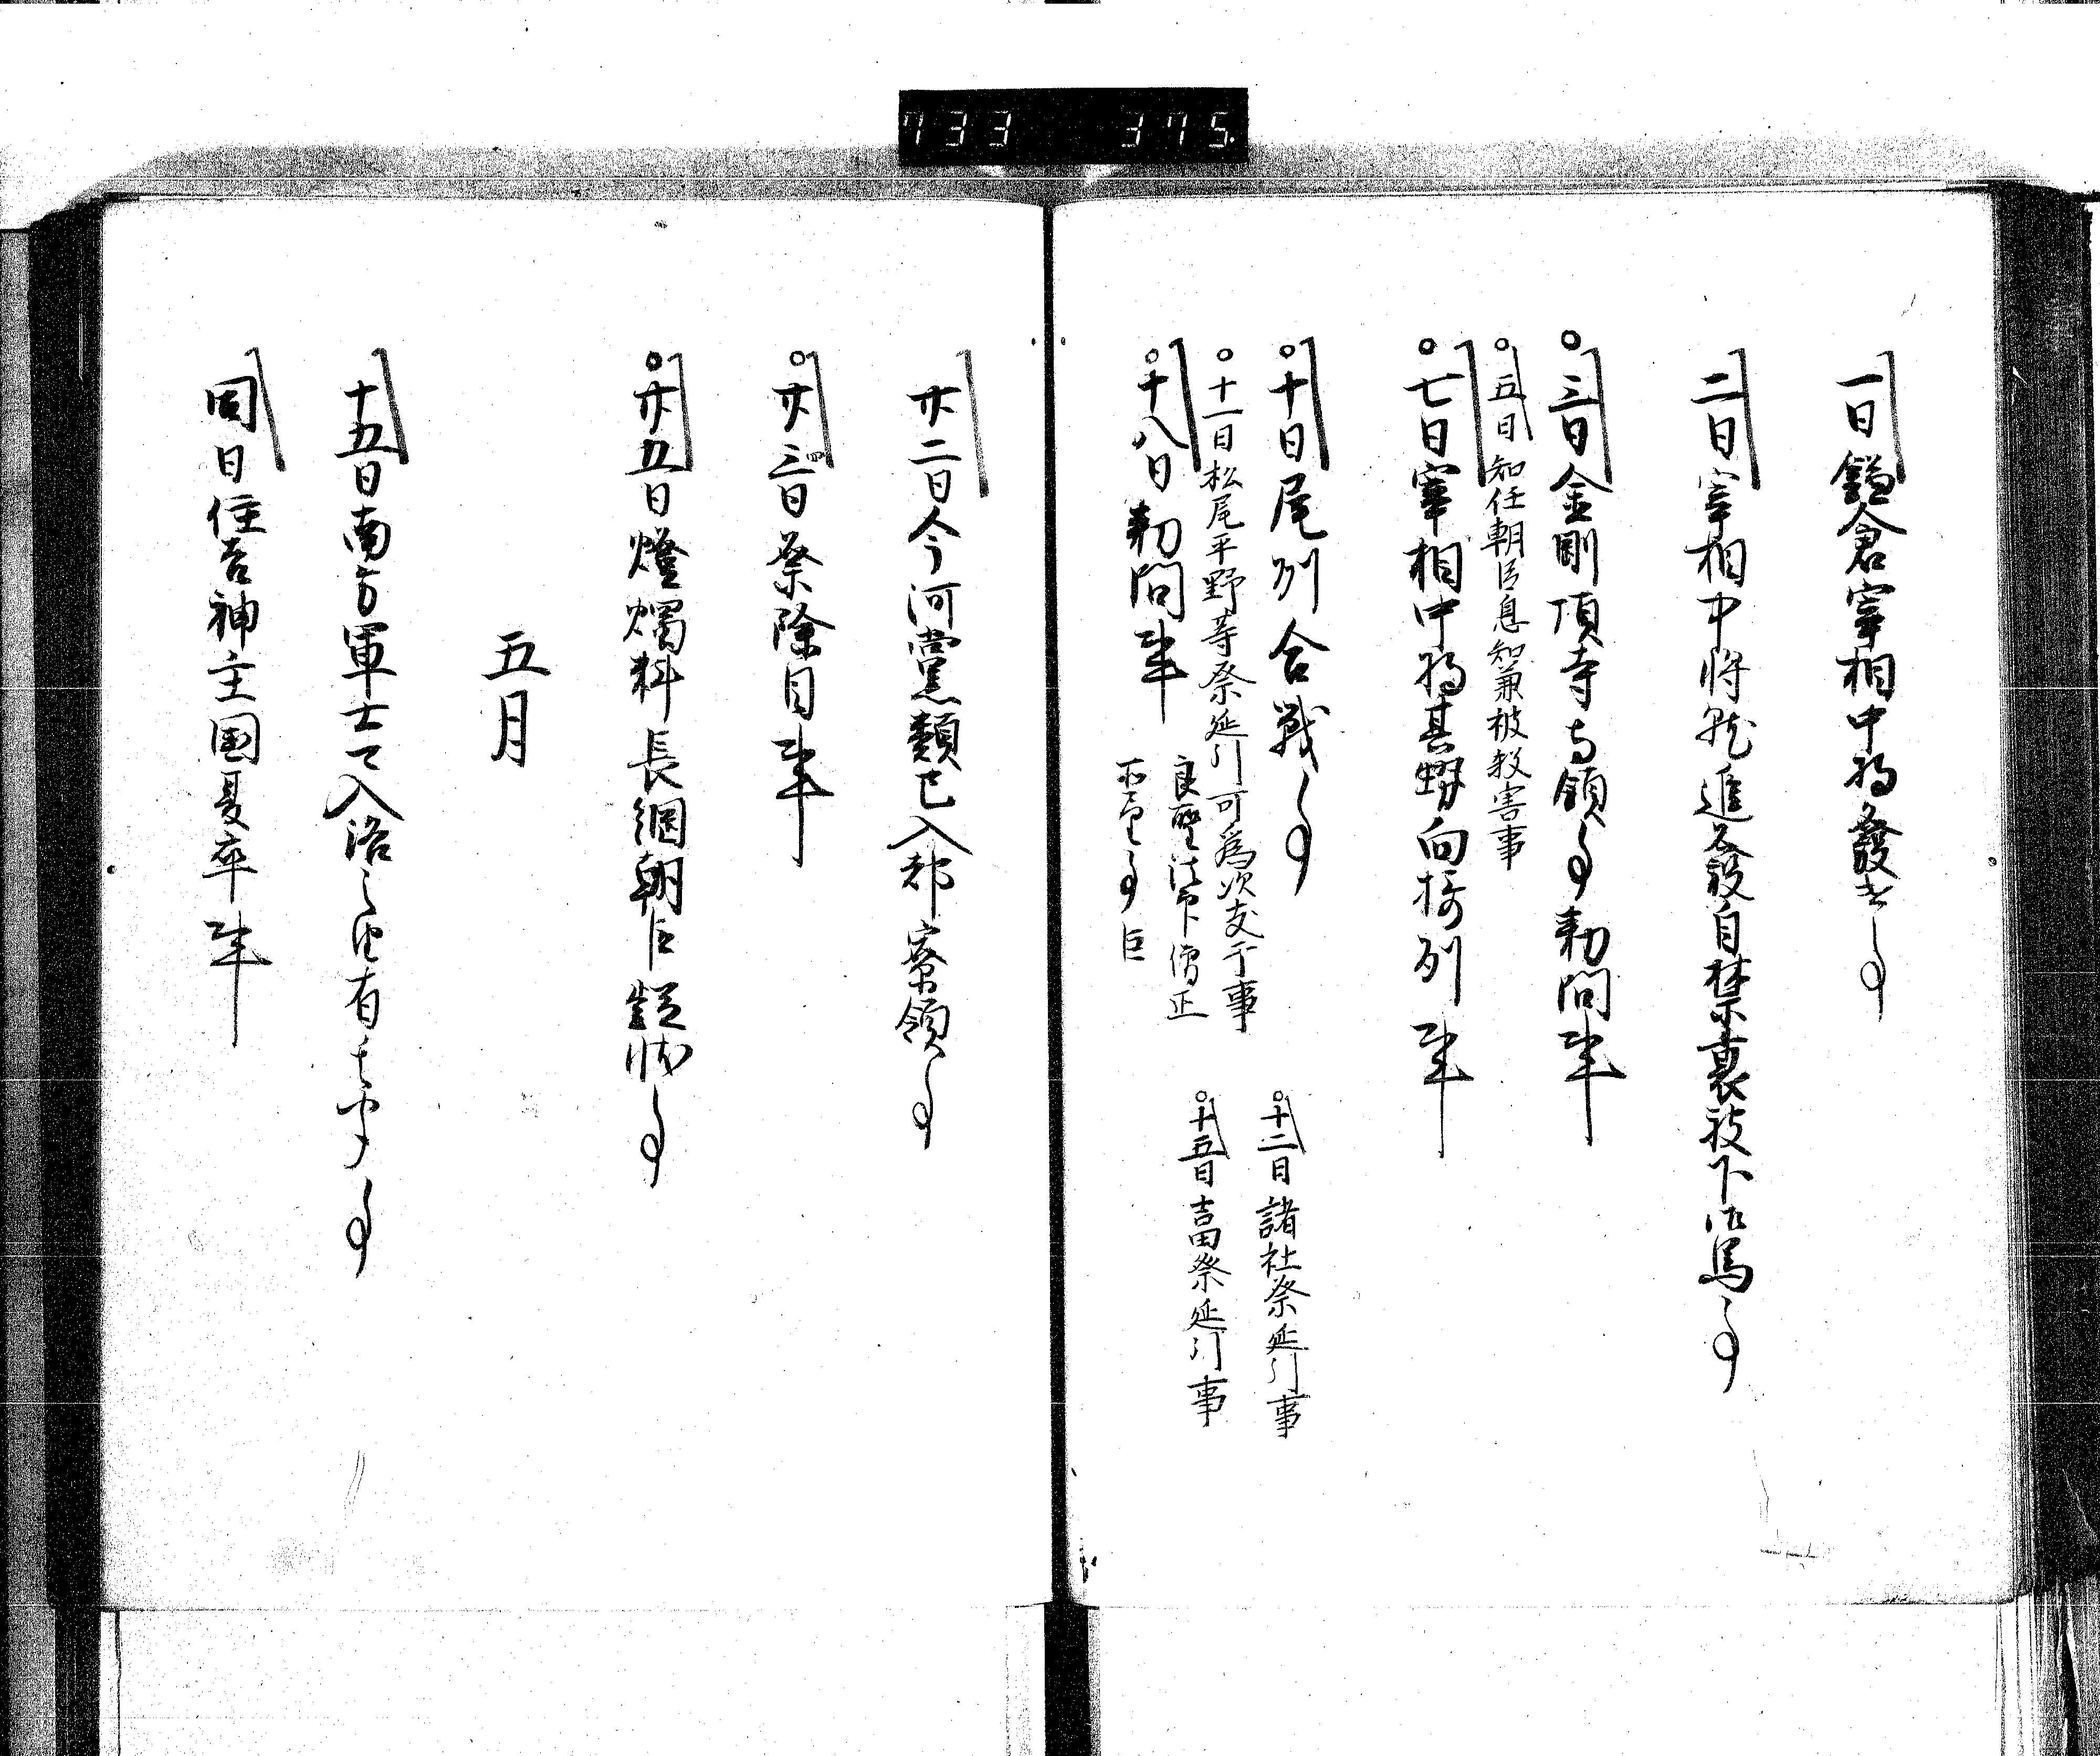 733 375
一日鎌倉宰相中将發□事
二日宰相中将就進發自禁裏被下御馬事
三日金剛頂寺寺領事勅問事
五日知任朝臣息知兼被殺害事
七日宰相中将其勢向揚州事
十日尾州合戦事
十一日松尾平野等祭延引可為次支干事
十二日諸社祭延引事
十五日吉田祭延引事
十八日勅問事
良聖法印僧正
所望事
廿二日今河黨類已入部寮領事
廿三日祭除目事
廿五日燈燭料長綱朝臣款状事
五月
十五日南方軍士可入洛之由有其聞事
同日住吉神主国夏卒事